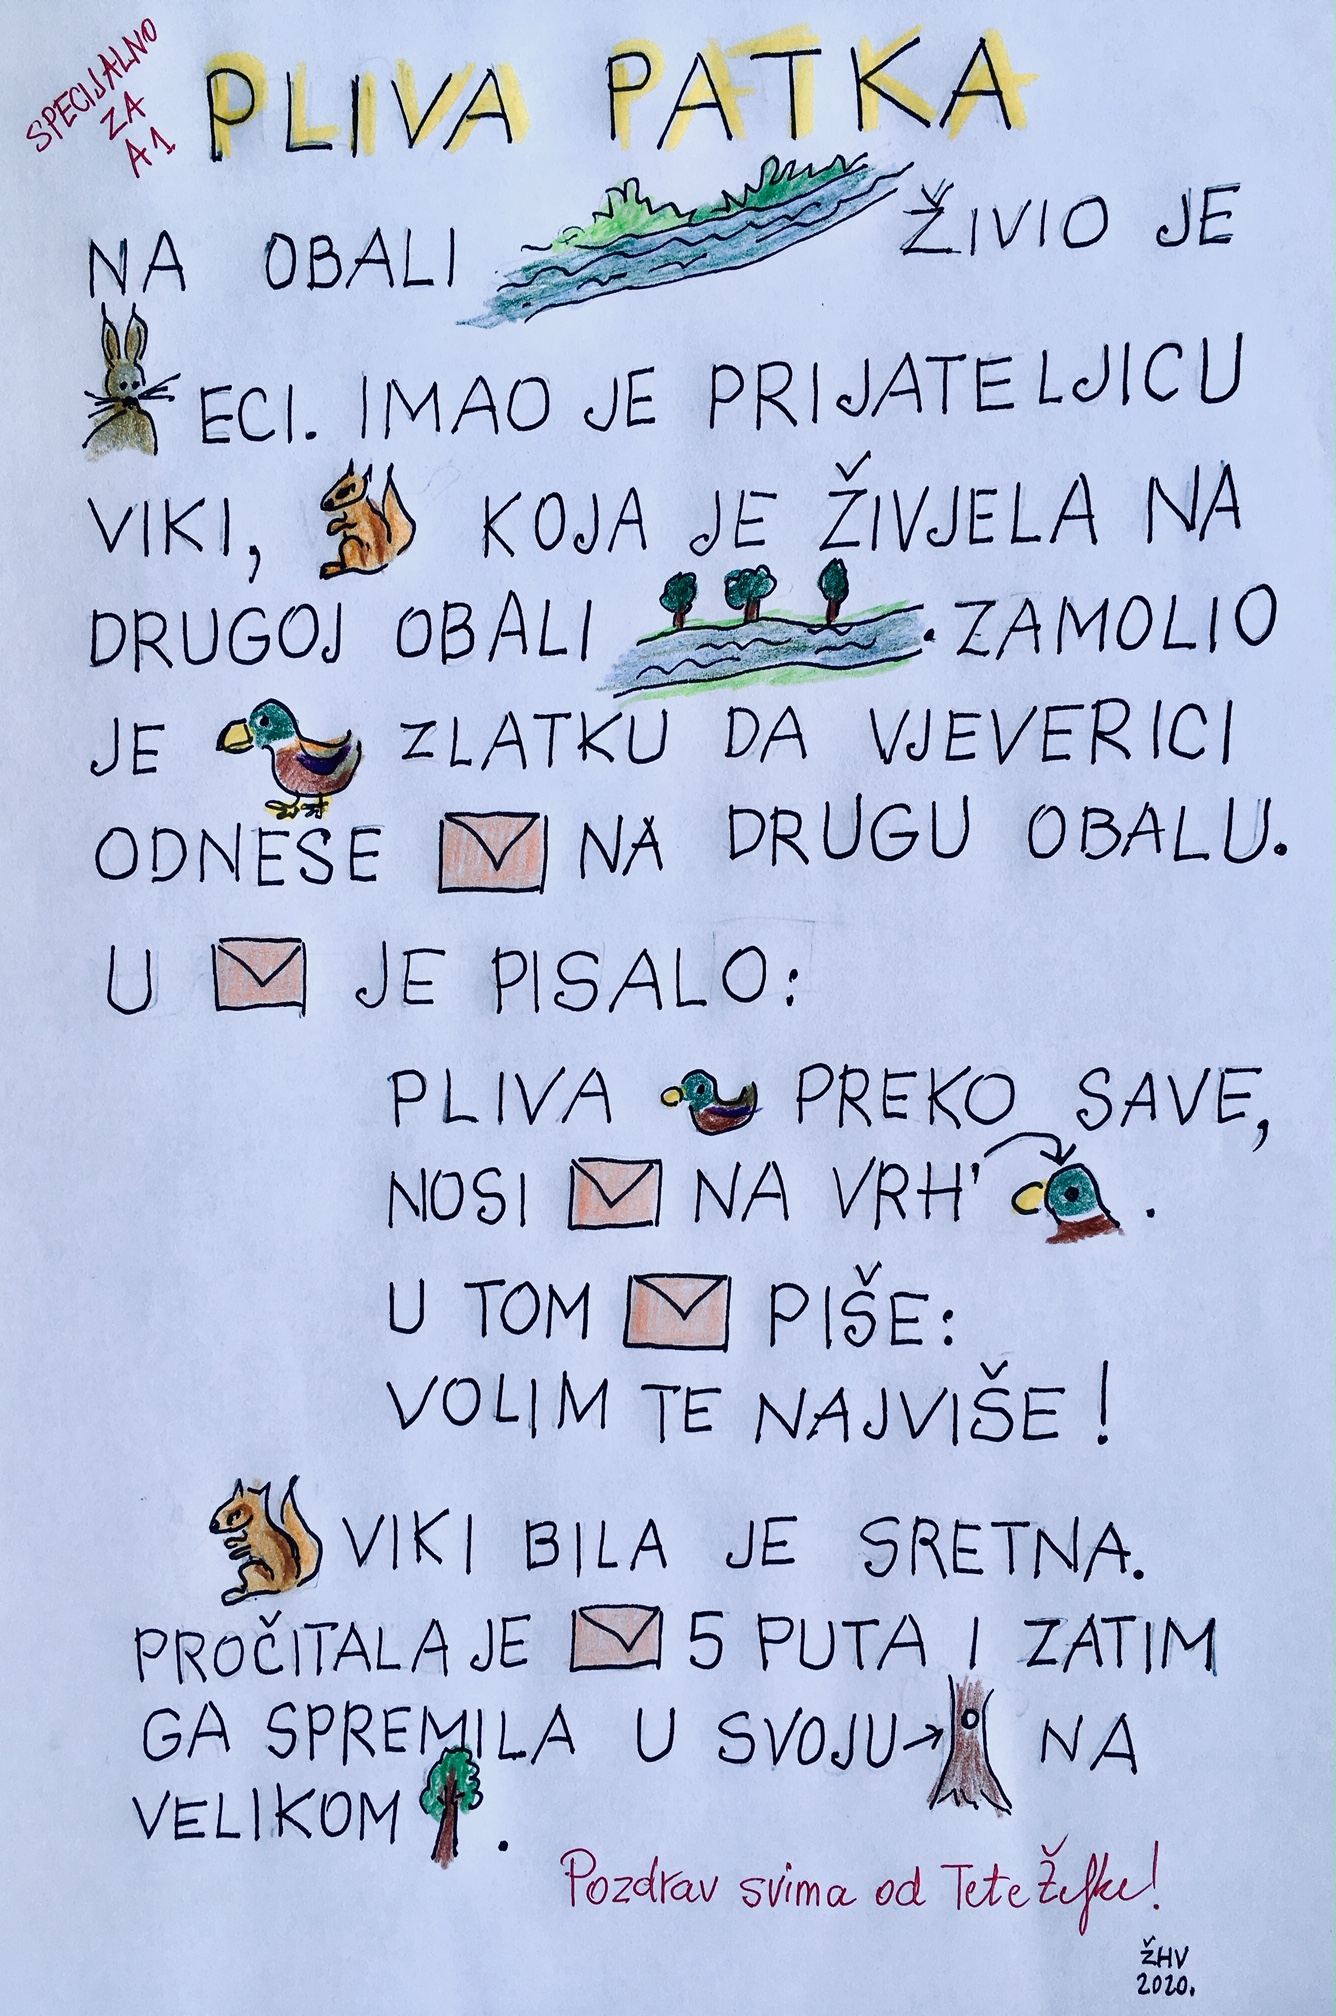 SPECIJALNO
ZA
A1
PLIVA PATKA
NA OBALI ŽIVIO JE
ECI. IMAO JE PRIJATELJICU
VIKI, KOJA JE ŽIVJELA NA
DRUGOJ OBALI . ZAMOLIO
JE ZLATKU DA VJEVERICI
ODNESE NA DRUGU OBALU.
U JE PISALO:
PLIVA PREKO SAVE,
NOSI NA VRH' .
U TOM PIŠE:
VOLIM TE NAJVIŠE!
VIKI BILA JE SRETNA.
PROČITALA JE 5 PUTA I ZATIM
GA SPREMILA U SVOJU → NA
VELIKOM .
Pozdrav svima od Tete Žefke!
ŽHV
2020.